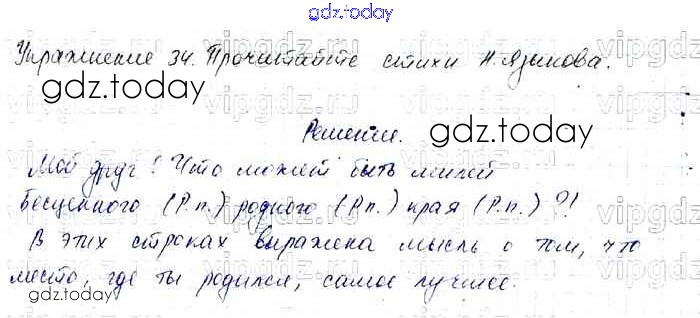 gdz.today
Упражнение 34. Прочитайте стихи Н. Языкова.
gdz.today
Решение.
gdz.today
Мой друг! Что может быть милей
Бесценного (Р.п.) родного (Р.п.) края (Р.п.)?!
В этих строках выражена мысль о том, что
место, где ты родился, самое лучшее.
gdz.today